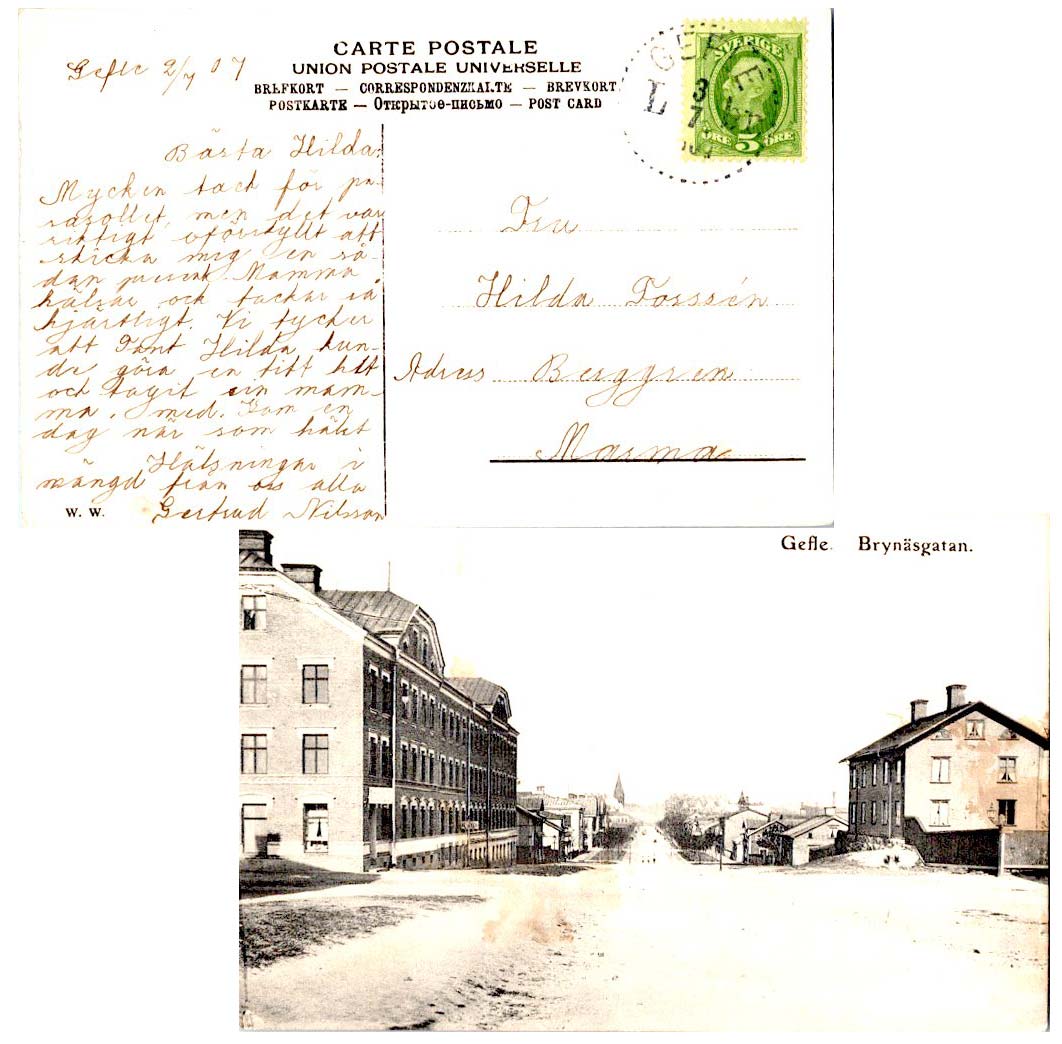 CARTE POSTALE
UNION POSTALE UNIVERSELLE
BREFKORT — CORRESPONDENZKARTE — BREVKORT
POSTKARTE — Открытое-письмо — POST CARD
Gefle 2/7 07
GEFLE
L
3
7
07
SVERIGE
ÖRE 5 ÖRE
Bästa Hilda.
Mycken tack för pa-
rasollet, men det var
riktigt oförskyllt att
skicka mig en så-
dan present. Mamma
hälsar och tackar så
hjärtligt. Vi tycker
att Tant Hilda kun-
de göra en titt hit
och tagit sin mam-
ma, med. Kom en
dag när som hälst
Hälsningar i
mängd från oss alla
Gertrud Nilsson
W. W.
Fru
Hilda Forssén
Adress Berggren
Marma
Gefle. Brynäsgatan.